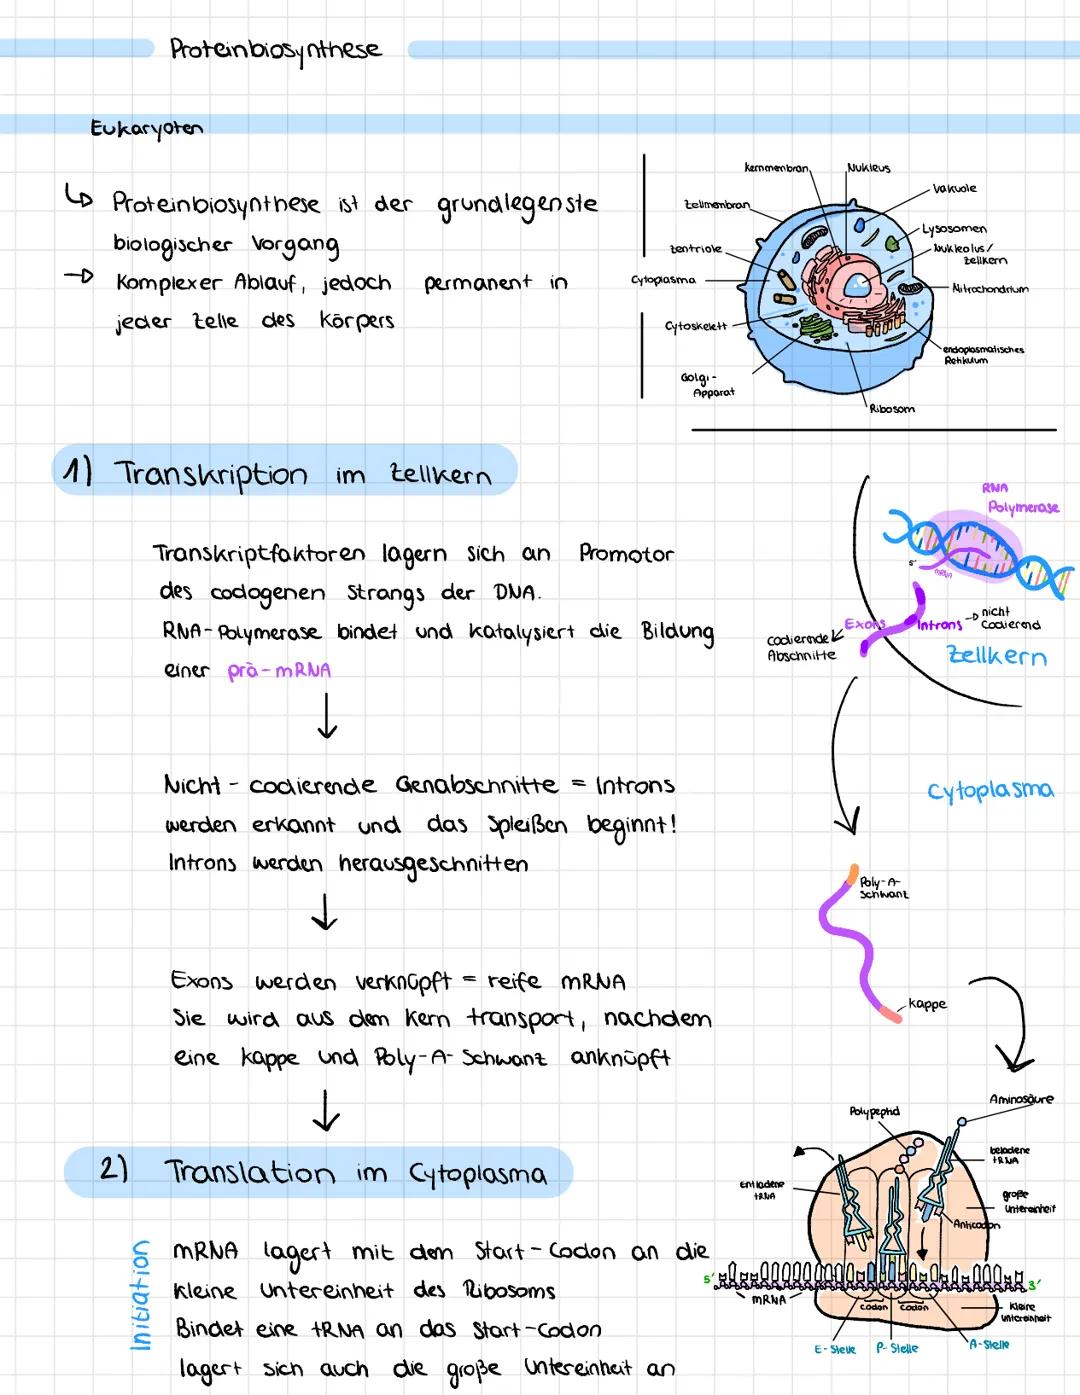 Proteinbiosynthese
Eukaryoten
↳ Proteinbiosynthese ist der grundlegenste
biologischer Vorgang
→ Komplexer Ablauf, jedoch permanent in
jeder Zelle des Körpers
Kernmembran
Nukleus
Vakuole
Zellmembran
Lysosomen
Zentriole
Nukleolus/
Zellkern
Cytoplasma
Mitrochondrium
Cytoskelett
endoplasmatisches
Retikulum
Golgi-
Apparat
Ribosom
1) Transkription im Zellkern
Transkriptfaktoren lagern sich an Promotor
des codogenen Strangs der DNA.
RNA-Polymerase bindet und katalysiert die Bildung
einer prä-mRNA
RNA
Polymerase
5'
mRNA
Exons
Introns → nicht
Codierend
codierende
Abschnitte
Zellkern
Nicht - codierende Genabschnitte = Introns
werden erkannt und das Spleißen beginnt!
Introns werden herausgeschnitten
Cytoplasma
Poly-A-
Schwanz
Exons werden verknüpft = reife mRNA
Sie wird aus dem Kern transport, nachdem
eine Kappe und Poly-A-Schwanz anknüpft
Kappe
2) Translation im Cytoplasma
Initiation
mRNA lagert mit dem Start-Codon an die
kleine Untereinheit des Ribosoms
Bindet eine tRNA an das Start-Codon
lagert sich auch die große Untereinheit an
Polypeptid
Aminosäure
beladene
tRNA
Entladene
tRNA
große
Untereinheit
Anticodon
5'
3'
mRNA
Codon
Codon
kleine
Untereinheit
E-Stelle
P-Stelle
A-Stelle